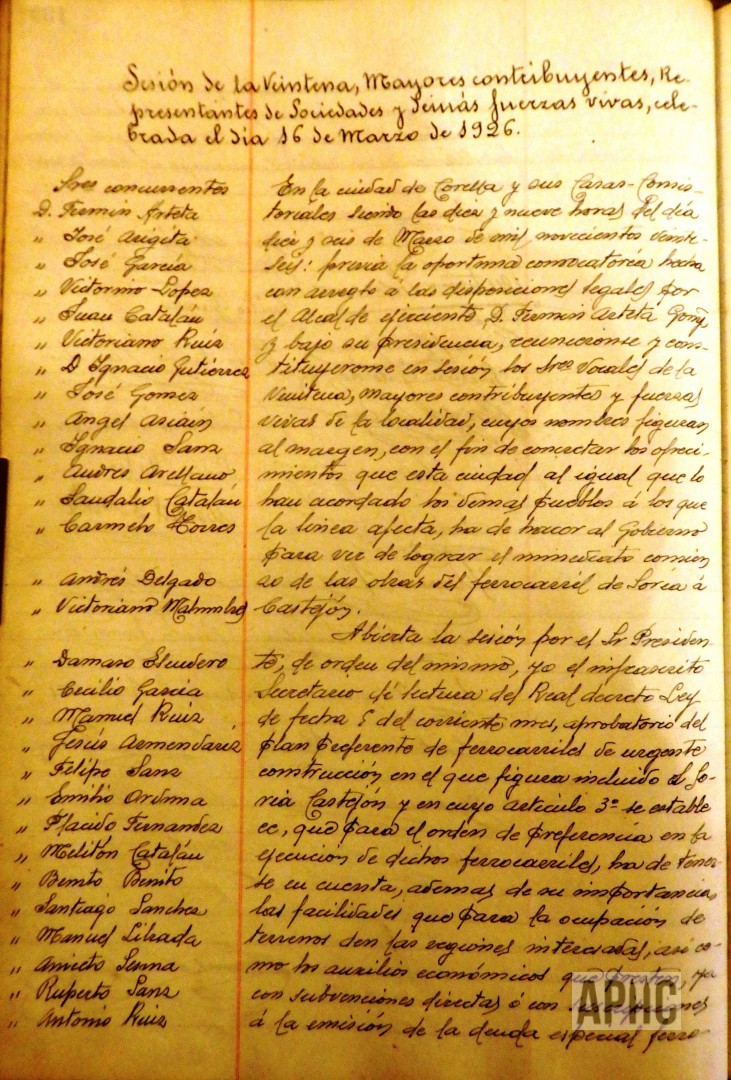 Sesión de la Veintena, Mayores contribuyentes, Re-
presentantes de Sociedades y demás fuerzas vivas, cele-
brada el día 16 de Marzo de 1926.
Sres concurrentes
D. Fermin Arteta
" José Arigita
" José García
" Victorino Lopez
" Juan Catalán
" Victoriano Ruiz
" D Ignacio Gutiérrez
" José Gomez
" Angel Asiain
" Ignacio Sanz
" Andres Arellano
" Sandalio Catalán
" Carmelo Torres
" Andrés Delgado
" Victoriano
" Damaso Escudero
" Cecilio Garcia
" Manuel Ruiz
" Jesús Armendariz
" Felipe Sanz
" Emilio
" Placido Fernandez
" Meliton Catalán
" Benito Benito
" Santiago Sanchez
" Manuel Librada
" Aniceto Sesma
" Ruperto Sanz
" Antonio Ruiz
En la ciudad de Corella y sus Casas-Consis-
toriales siendo las diez y nueve horas del día
diez y seis de Marzo de mil novecientos veinti-
seis: previa la oportuna convocatoria hecha
con arreglo á las disposiciones legales por
el Alcalde ejerciente D. Fermin Arteta
y bajo su presidencia, reunieronse y cons-
tituyeronse en sesión los Sres Vocales de la
Veintena, mayores contribuyentes y fuerzas
vivas de la localidad, cuyos nombres figuran
al margen, con el fin de concretar los ofreci-
mientos que esta ciudad al igual que lo
han acordado los demas pueblos á los que
la linea afecta, ha de hacer al Gobierno
para ver de lograr el inmediato comien
zo de las obras del ferrocarril de Soria á
Castejón.
Abierta la sesión por el Sr Presiden-
te, de orden del mismo, yo el infrascrito
Secretario dí lectura del Real decreto Ley
de fecha 5 del corriente mes, aprobatorio del
plan preferente de ferrocarriles de urgente
construcción en el que figura incluido el So-
ria Castejón y en cuyo artículo 3º se estable
ce, que para el orden de preferencia en la
ejecución de dichos ferrocarriles, ha de tener-
se en cuenta, ademas de su importancia,
las facilidades que para la ocupación de
terrenos den las regiones interesadas, así co-
mo los auxilios económicos que presten, ya
con subvenciones directas ó con
á la emisión de la deuda especial ferro
APHC